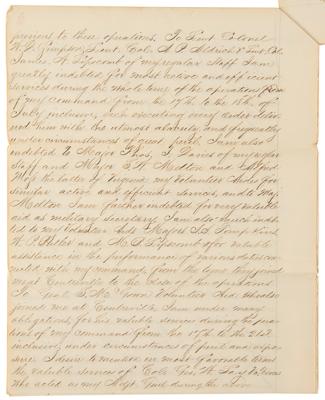 previous to these operations. To Lieut Colonel
W. Simpson, Lieut. Cols. A. P. Aldrich & Lieut. Col.
James, H. Lipscomb of my regular Staff I am
greatly indebted for most active and efficient
services during the whole time of the operations
of my command from the 17th to the
July inclusive, each executing every order
him with the utmost alacrity, and frequently
under circumstances of great peril. I am also
indebted to Major Thos. J. Davis of my regular
Staff and Majors S. W. Melton and Alfred
the latter my for
similar active and efficient services, and to Maj.
Melton I am further indebted for very valuable
aid as military secretary. I am also much indeb-
ted to my Volunteer Aids Majors
W. P. and M. P. Lipscomb for valuable
assistance in the performance of various duties con-
nected with my command, from the time they joined
me at Centreville to the close of the operations
To Genl. S. McGowan Volunteer Aid, who also
joined me at Centreville I am under many
obligations, for his valuable services during the opera-
tions of my command from the 17th to the 22d
inclusive, under circumstances of peril and expo-
sure I desire to mention in most favorable terms
the valuable services of Cols. Geo. W. Lay
who acted as my Adjt. Genl during the above